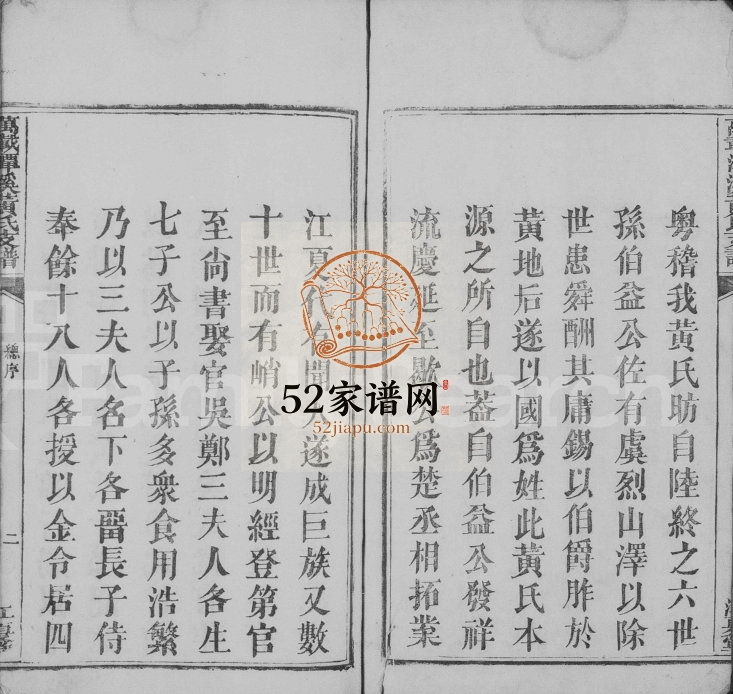 粤稽我黄氏昉自陸終之六世
孫伯益公佐有虞烈山澤以除
世患舜酬其庸錫以伯爵胙於
黄地后遂以國爲姓此黄氏本
源之所自也葢自伯益公發祥
流慶延至歇公爲楚丞相拓業
江夏代有聞人遂成巨族又數
十世而有峭公以明經登第官
至尙書娶官吳鄭三夫人各生
七子公以子孫多衆食用浩繁
乃以三夫人名下各畱長子侍
奉餘十八人各授以金令居四
萬載潭溪黄氏支譜
總序
二
52家谱网
52jiapu.com